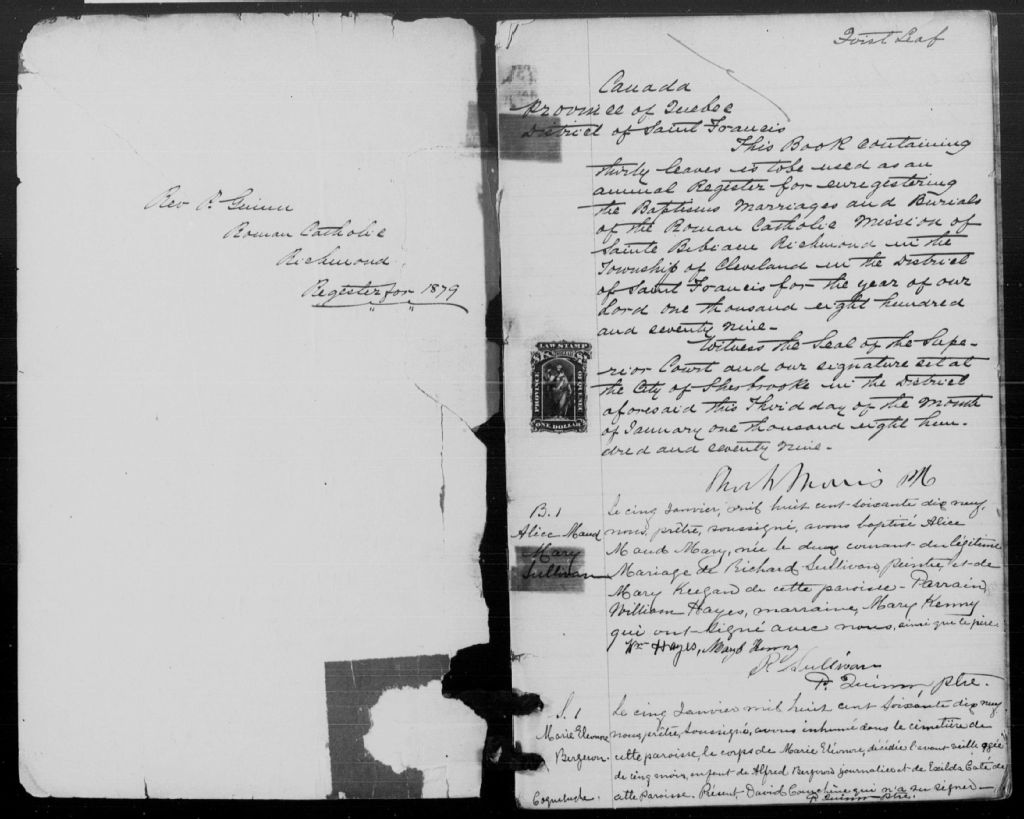 Rev P. Quinn
Roman Catholic
Richmond
Register for 1879
First Leaf
Canada
Province of Quebec
District of Saint Francis
This Book containing
thirty leaves is to be used as an
annual Register for enregistering
the Baptisms Marriages and Burials
of the Roman Catholic Mission of
Sainte Bibiane Richmond in the
Township of Cleveland in the District
of Saint Francis for the year of our
Lord one thousand eight hundred
and seventy nine-
Witness the Seal of the Supe-
rior Court and our signature set at
the City of Sherbrooke in the District
aforesaid this Third day of the Month
of January one thousand eight hun-
dred and seventy nine-
LAW STAMP
PROVINCE
OF QUEBEC
ONE DOLLAR
Morris
B. 1
Alice Maud
Mary
Sullivan
Le cinq Janvier, mil huit cent-soixante dix neuf,
nous, prêtre, soussigné, avons baptisé Alice
Maud Mary, née le deux courant du légitime
Mariage de Richard Sullivan, peintre, et de
Mary Keegan de cette paroisse- Parrain,
William Hayes, marraine, Mary Kenny
qui ont signé avec nous, ainsi que le père-
Wm Hayes, Mary Kenny
R. Sullivan
P. Quinn, ptre.
S. 1
Marie Eléonore
Bergeron.
Coqueluche.
Le cinq Janvier mil huit cent soixante dix neuf
nous, prêtre, soussigné, avons inhumé dans le cimetière de
cette paroisse, le corps de Marie Eléonore, décédée l'avant veille agée
de cinq mois, enfant de Alfred Bergeron journalier et de Exilda Coté de
cette Paroisse. Présent, David qui n'a su signer-
P. Quinn ptre.